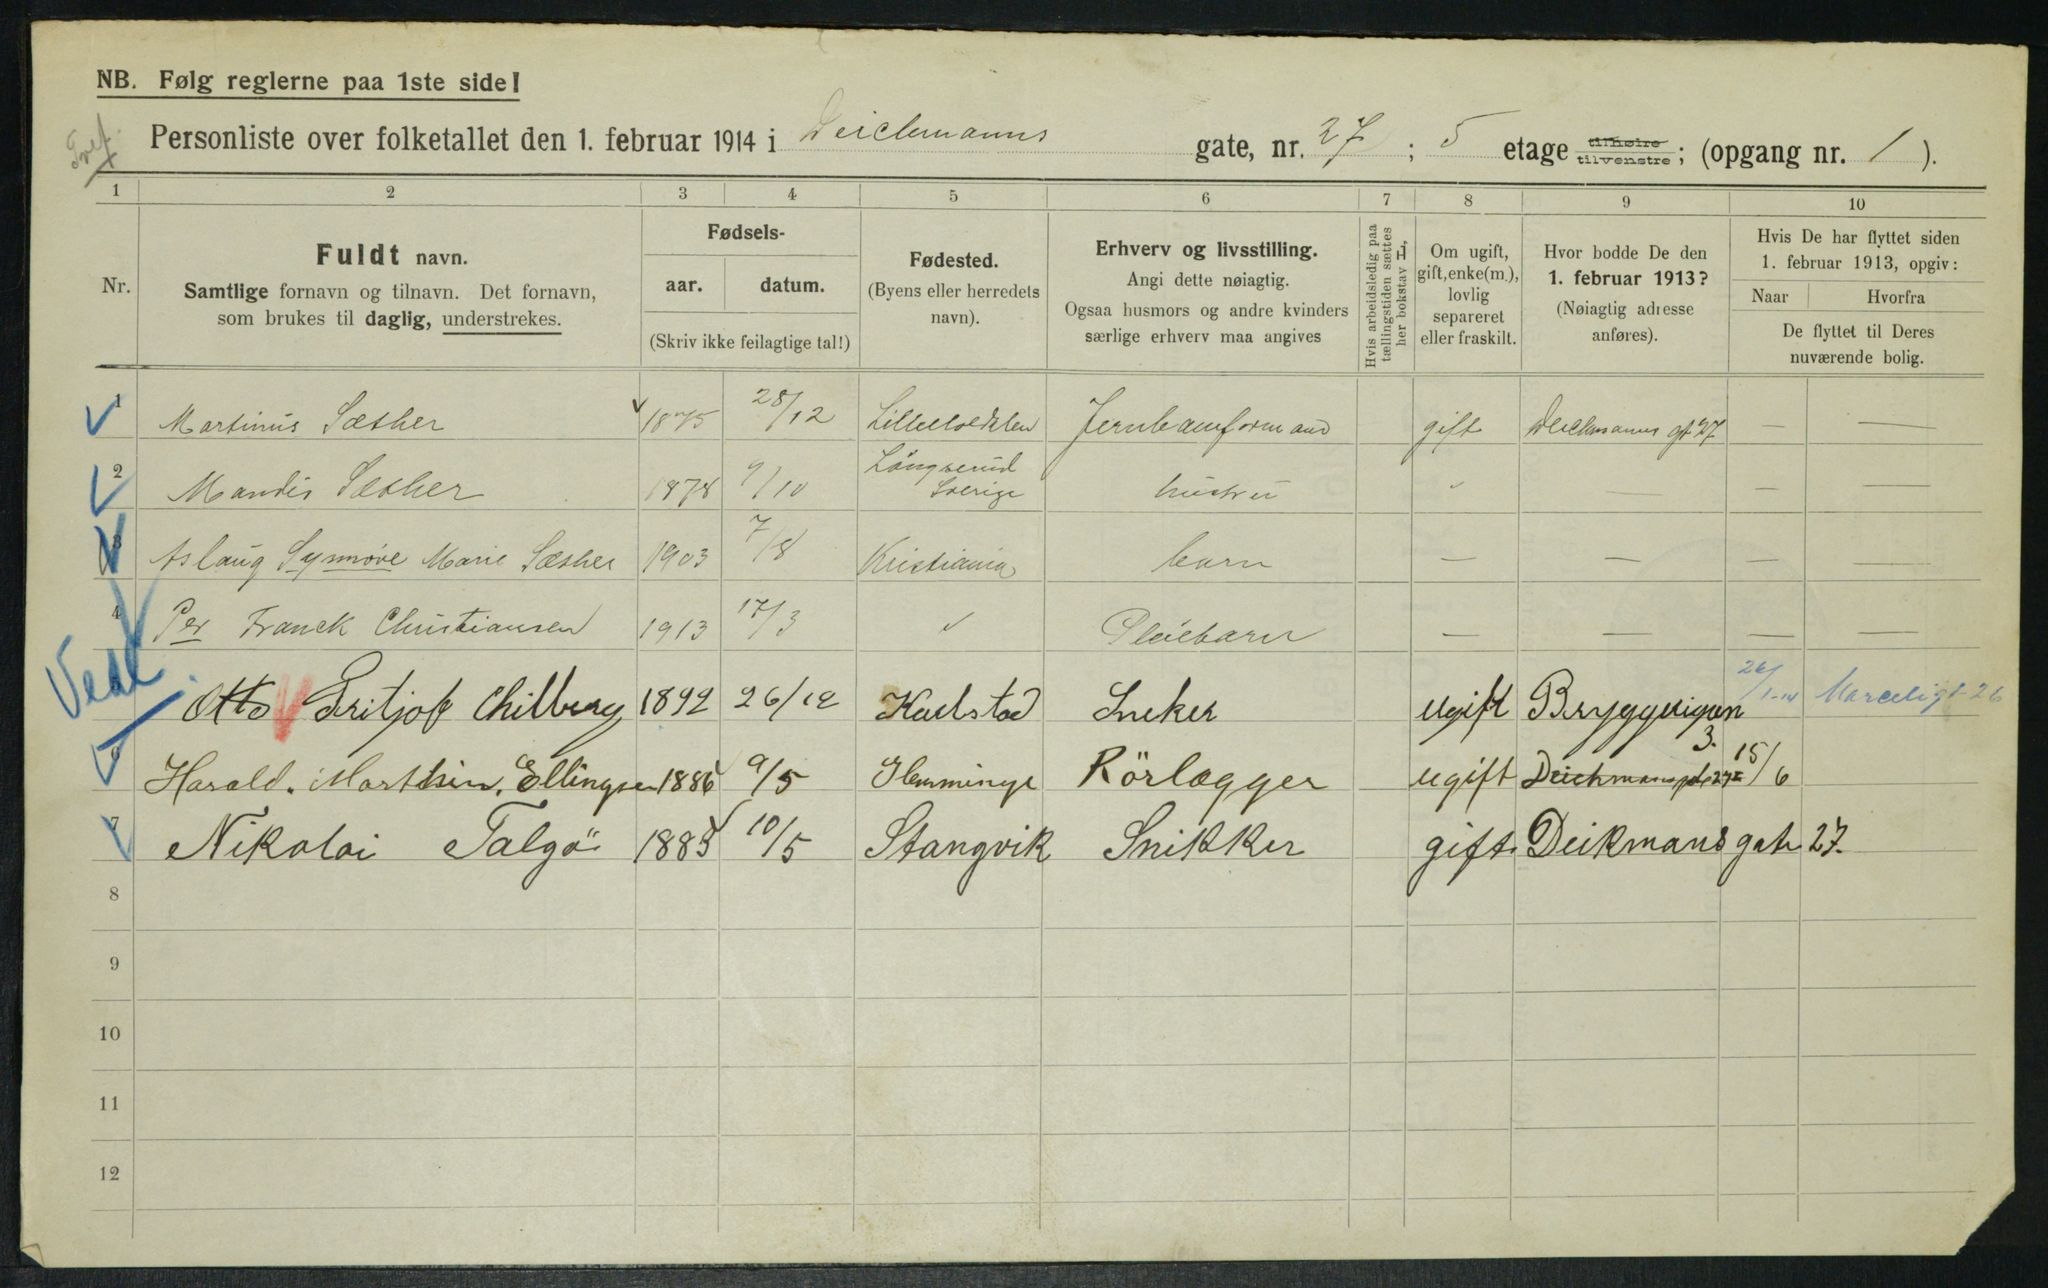 NB. Følg reglerne paa 1ste side!
Personliste over folketallet den 1. februar 1914 i Deichmanns gate, nr. 27; 5 etage tilhøire tilvenstre; (opgang nr. 1).
1 2 3 4 5 6 7 8 9 10
Nr.
Fuldt navn.
Samtlige fornavn og tilnavn. Det fornavn,
som brukes til daglig, understrekes.
Fødsels-
aar. datum.
(Skriv ikke feilagtige tal!)
Fødested.
(Byens eller herredets
navn).
Erhverv og livsstilling.
Angi dette nøiagtig.
Ogsaa husmors og andre kvinders
særlige erhverv maa angives
Hvis arbeidsledig paa
tællingstiden sættes
her bokstav L,
Om ugift,
gift, enke(m.),
lovlig
separeret
eller fraskilt.
Hvor bodde De den
1. februar 1913?
(Nøiagtig adresse
anføres).
Hvis De har flyttet siden
1. februar 1913, opgiv:
Naar Hvorfra
De flyttet til Deres
nuværende bolig.
1 Martinus Sæther 1875 28/12 Jernbaneformand gift Deichmanns gt 27 — —
2 Mandis Sæther 1878 9/10 Sverige hustru " — — —
3 Aslaug Synnøve Marie Sæther 1903 7/8 Kristiania barn — — — —
4 Per Franck Christiansen 1913 17/3 " Pleiebarn — — — —
5 Otto Fritjof Chilberg 1892 26/12 Karlstad Sneker ugift 3. 26/1-14
6 Harald. Marthin. Ellingsen 1886 9/5 Rörlægger ugift 15/6
7 Nikolai Talgö 1885 10/5 Stangvik Snikker gift Deikmans gate 27.
8
9
10
11
12